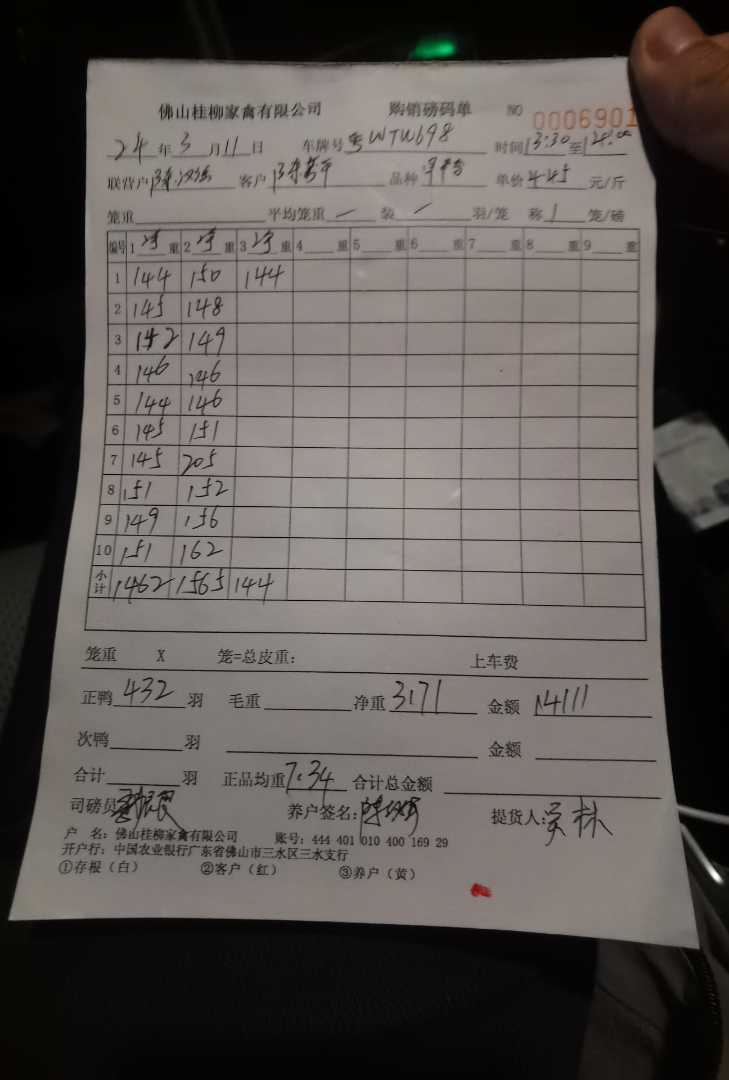 佛山桂柳家禽有限公司 购销磅码单 NO 0006901
24年3月11日 车牌号粤WTW698 时间13:30至
联营户陈 客户陈 品种 单价4.45元/斤
笼重 平均笼重— 装— 羽/笼 称1笼/磅
编号 1净重 2净重 3净重 4重 5重 6重 7重 8重 9重
1 144 150 144
2 145 148
3 142 149
4 146 146
5 144 146
6 145 151
7 145 205
8 151 152
9 149 156
10 151 162
小计 1462 1565 144
笼重 X 笼=总皮重: 上车费
正鸭432羽 毛重 净重3171 金额14111
次鸭 羽 金额
合计 羽 正品均重7.34 合计总金额
司磅员 养户签名:陈 提货人: 林
户 名:佛山桂柳家禽有限公司 账号:444 401 010 400 169 29
开户行:中国农业银行广东省佛山市三水区三水支行
①存根(白) ②客户(红) ③养户(黄)